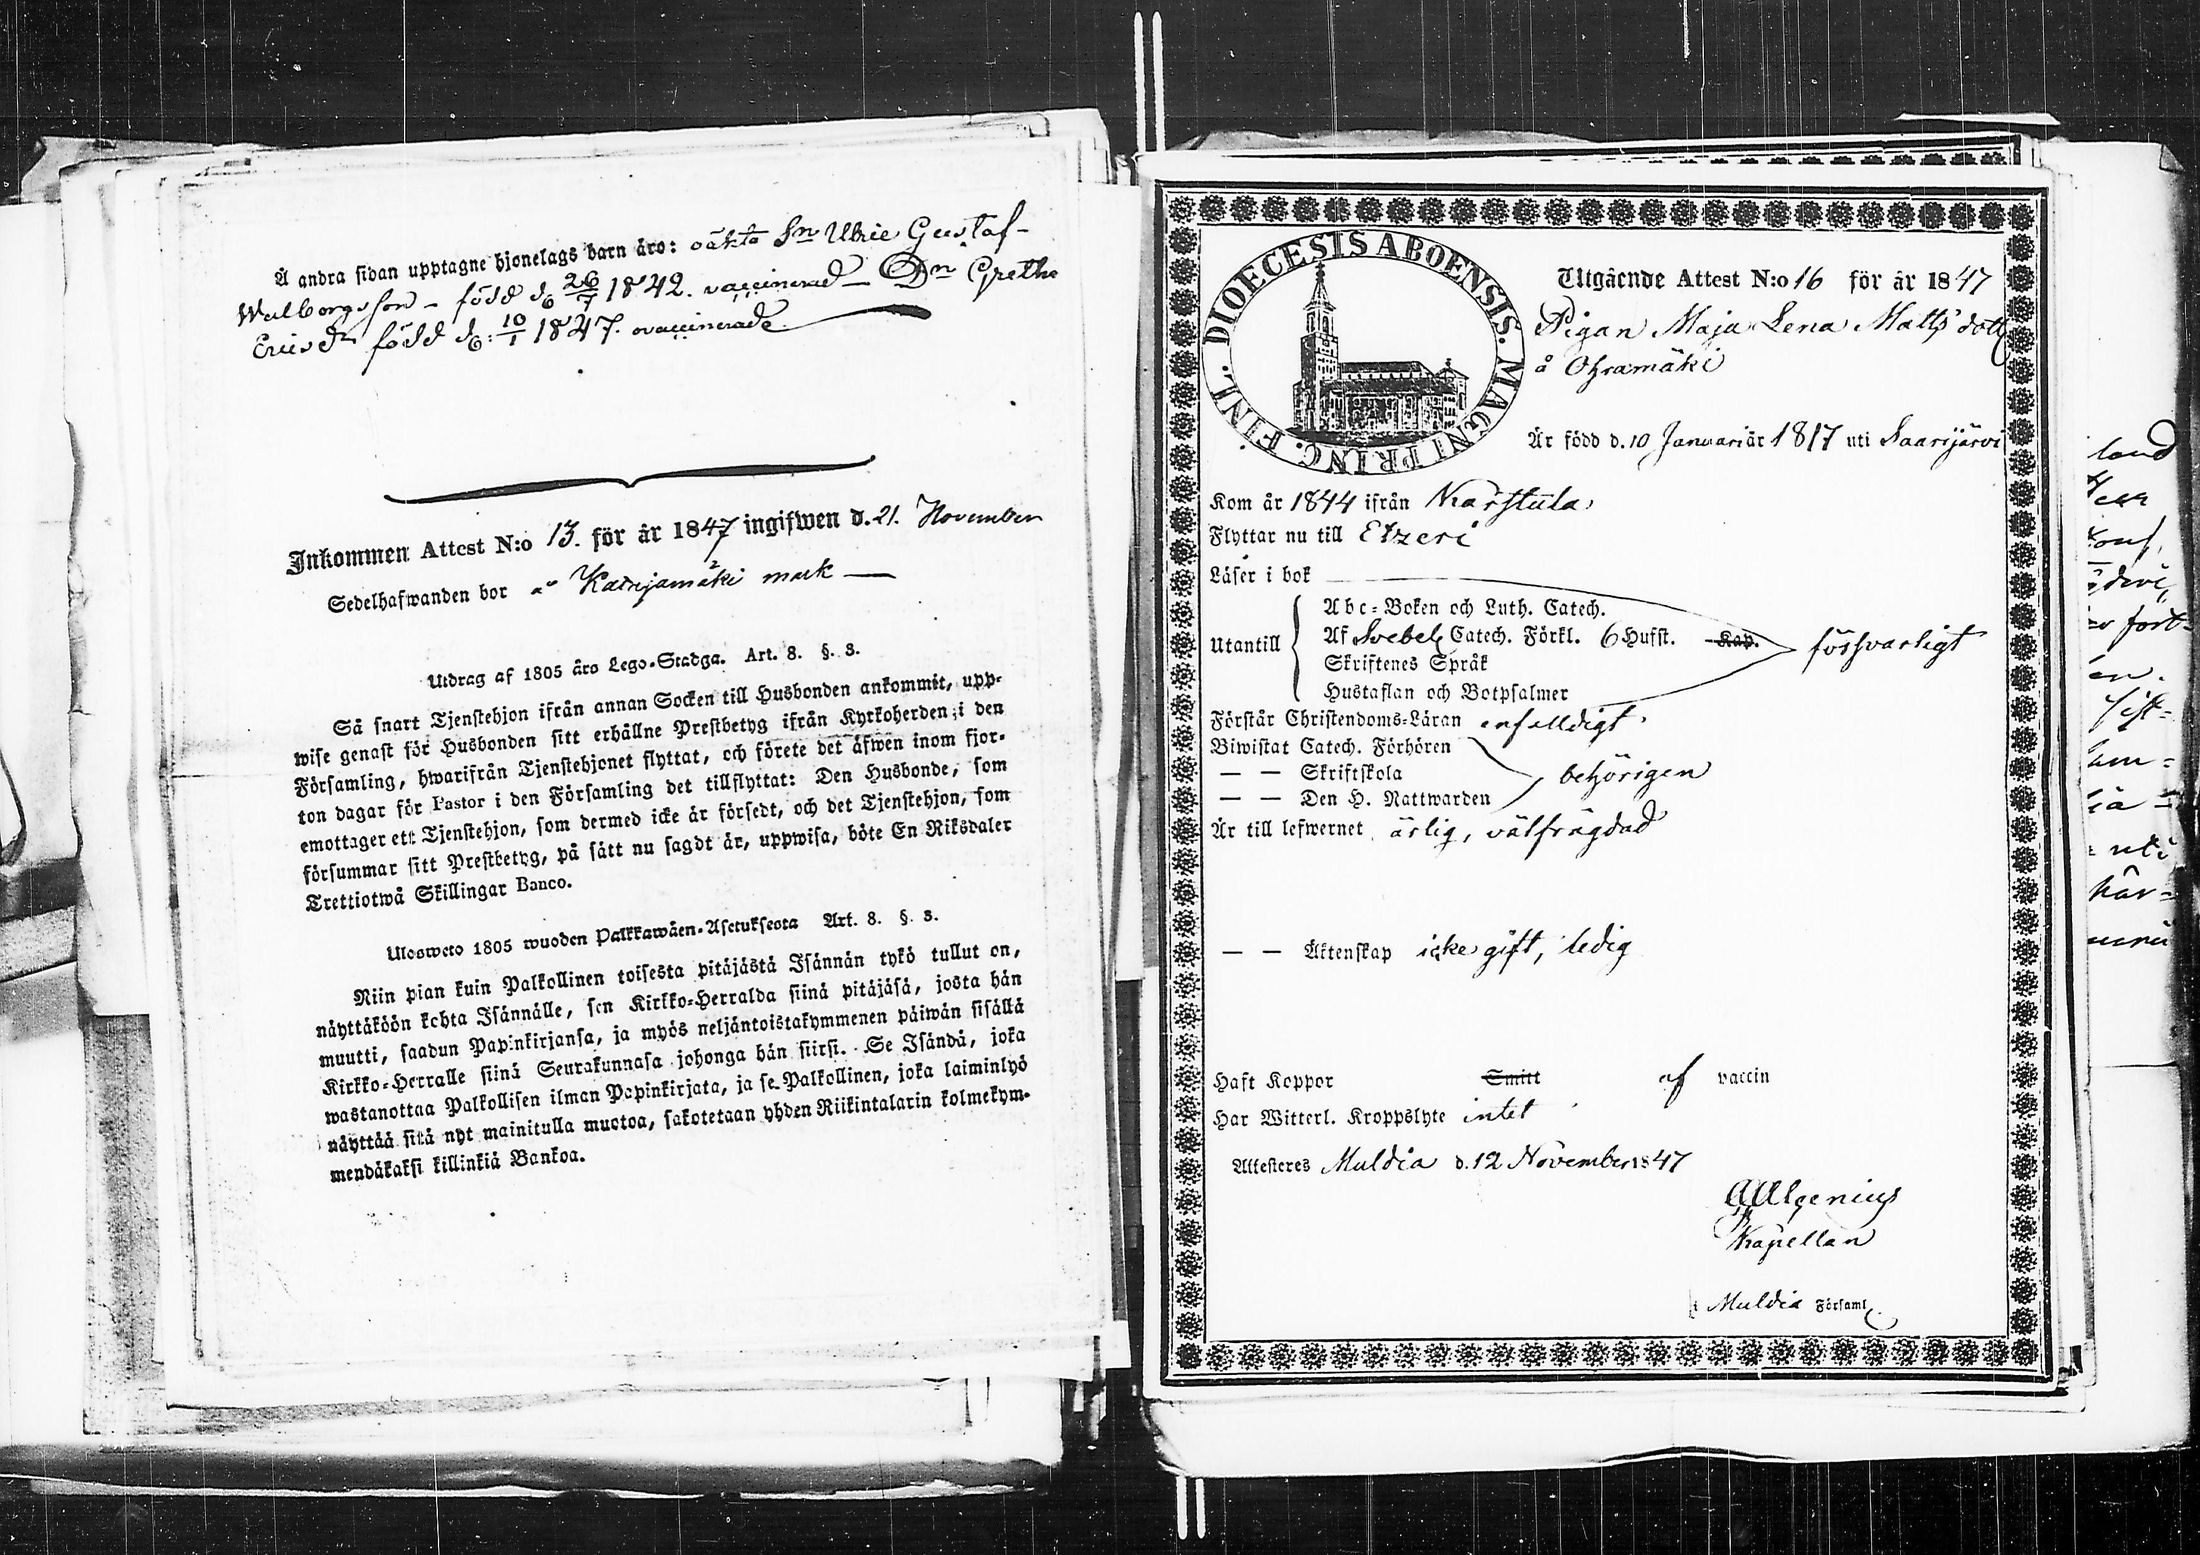 Å andra sidan upptagne hjonelags barn äro: oäkta Sn Ulric Gustaf
Walborgsson - född d. 26/7 1842. vaccinerad - Dr Gretha
Ericsdr född d: 10/1 1847. ovaccinerade
Inkommen Attest N:o 13. för år 1847 ingifwen d. 21. November
Sedelhafwanden bor å Katajamäki mark —
Utdrag af 1805 års Lego-Stadga. Art. 8. §. 3.
Så snart Tjenstehjon ifrån annan Socken till Husbonden ankommit, upp-
wise genast för Husbonden sitt erhållne Prestbetyg ifrån Kyrkoherden i den
Församling, hwarifrån Tjenstehjonet flyttat, och förete det äfwen inom fjor-
ton dagar för Pastor i den Församling det tillflyttat: Den Husbonde, som
emottager ett Tjenstehjon, som dermed icke är försedt, och det Tjenstehjon, som
försummar sitt Prestbetyg, på sätt nu sagdt är, uppwisa, böte En Riksdaler
Trettiotwå Skillingar Banco.
Ulosweto 1805 wuoden Palkkawäen-Asetuksesta Art. 8. §. 3.
Niin pian kuin Palkollinen toisesta pitäjästä Isännän tykö tullut on,
näyttäköön kohta Isännälle, sen Kirkko-Herralda siinä pitäjäsä, josta hän
muutti, saadun Papinkirjansa, ja myös neljäntoistakymmenen päiwän sisällä
Kirkko-Herralle siinä Seurakunnasa johonga hän siirsi. Se Isändä, joka
wastanottaa Palkollisen ilman Papinkirjata, ja se Palkollinen, joka laiminlyö
näyttää sitä nyt mainitulla muotoa, sakotetaan yhden Riikintalarin kolmekym-
mendäkaksi killinkiä Bankoa.
DIOECESIS ABOENSIS. MAGNI PRINC. FINL.
Utgående Attest N:o 16 för år 1847
Pigan Maja Lena Mattsdott
å Ohramäki
Är född d. 10 Januari år 1817 uti Saarijärvi
Kom år 1844 ifrån Karstula
Flyttar nu till Etzeri
Läser i bok
Utantill
Abc-Boken och Luth. Catech.
Af Svebel. Catech. Förkl. 6 Hufst. Kap.
Skriftenes Språk
Hustaflan och Botpsalmer
försvarligt
Förstår Christendoms-Läran enfalldigt.
Biwistat Catech. Förhören
— — Skriftskola
— — Den H. Nattwarden
behörigen
Är till lefwernet ärlig, välfrägdad
— — Äktenskap icke gift, ledig
Haft Koppor Smitt af vaccin
Har Witterl. Kroppslyte intet
Attesteres Muldia d. 12 November 1847
Kapellan
i Muldia Församl.
land
fort-
sist-
uti
här-